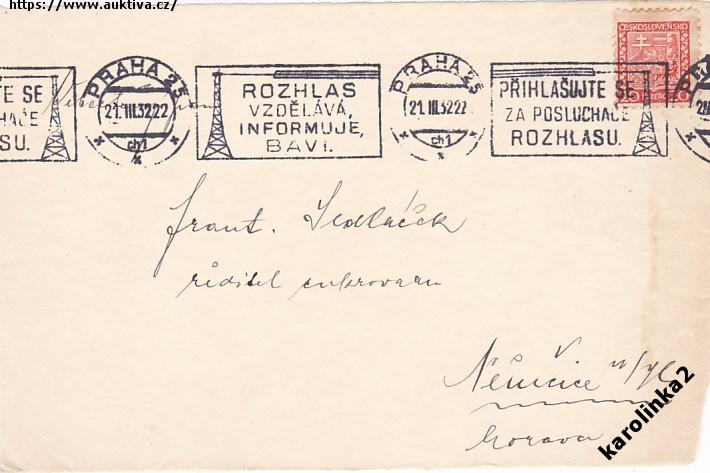 https://www.auktiva.cz/
ČESKOSLOVENSKO
TE SE
HAČE
SU.
PRAHA 25
21.III.32 22
ch1
ROZHLAS
VZDĚLÁVÁ,
INFORMUJE,
BAVÍ.
PRAHA 25
21.III.32 22
ch1
PŘIHLAŠUJTE SE
ZA POSLUCHAČE
ROZHLASU.
Frant. Sedláček
ředitel cukrovaru
Němčice n/H
Morava
karolinka2